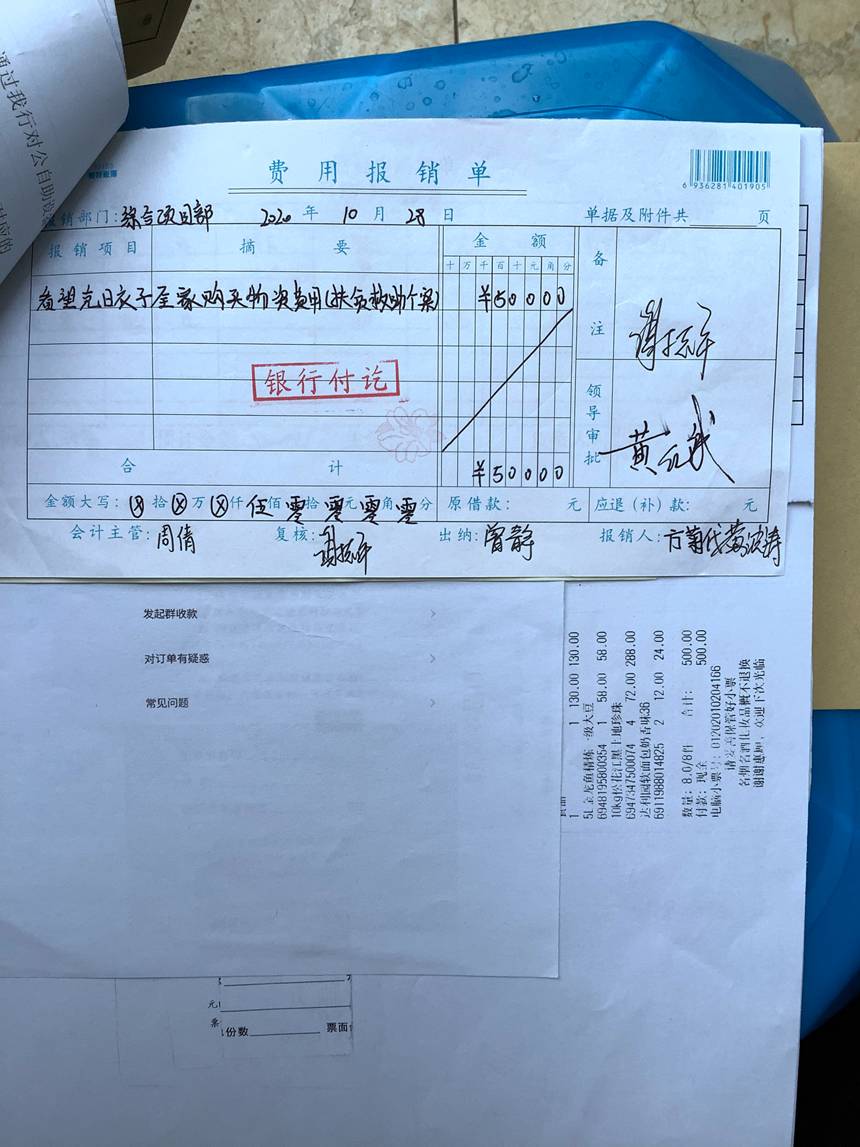 通过我行对公自助
费用报销单
6 936281 401905
销部门：综合项目部 2020 年 10 月 28 日 单据及附件共 页
报销项目 摘要 金额 备注
十 万 千 百 十 元 角 分
购买物资费用(扶贫救助个案) ¥50000
银行付讫
领导审批
合计 ¥50000
金额大写：ⓧ拾ⓧ万ⓧ仟伍佰零拾零元零角零分 原借款： 元 应退（补）款： 元
会计主管：周倩 复核： 出纳：曾静 报销人：
发起群收款
对订单有疑惑
常见问题
1 1 130.00 130.00
5L金龙鱼精炼一级大豆
6948195800354 1 58.00 58.00
10kg松花江黑土地珍珠
6947347500074 4 72.00 288.00
达利园软面包奶香味36
6911988014825 2 12.00 24.00
数量：8.0/8件 合计： 500.00
付款：现金 500.00
电脑小票号：01202010204166
请妥善保管好小票
名烟名酒化妆品概不退换
谢谢惠顾，欢迎下次光临
元
票
份数 票面